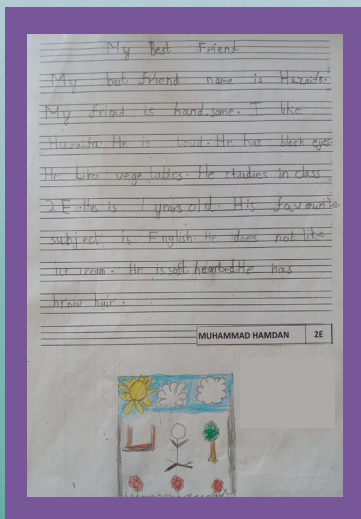 My Best Friend
My best friend name is Huzaifa.
My friend is handsome. I like
Huzaifa. He is loud. He has black eyes.
He likes vegetables. He studies in class
2E. He is 7 years old. His favourite
subject is English. He does not like
ice cream. He is soft hearted. He has
brow hair.
MUHAMMAD HAMDAN 2E